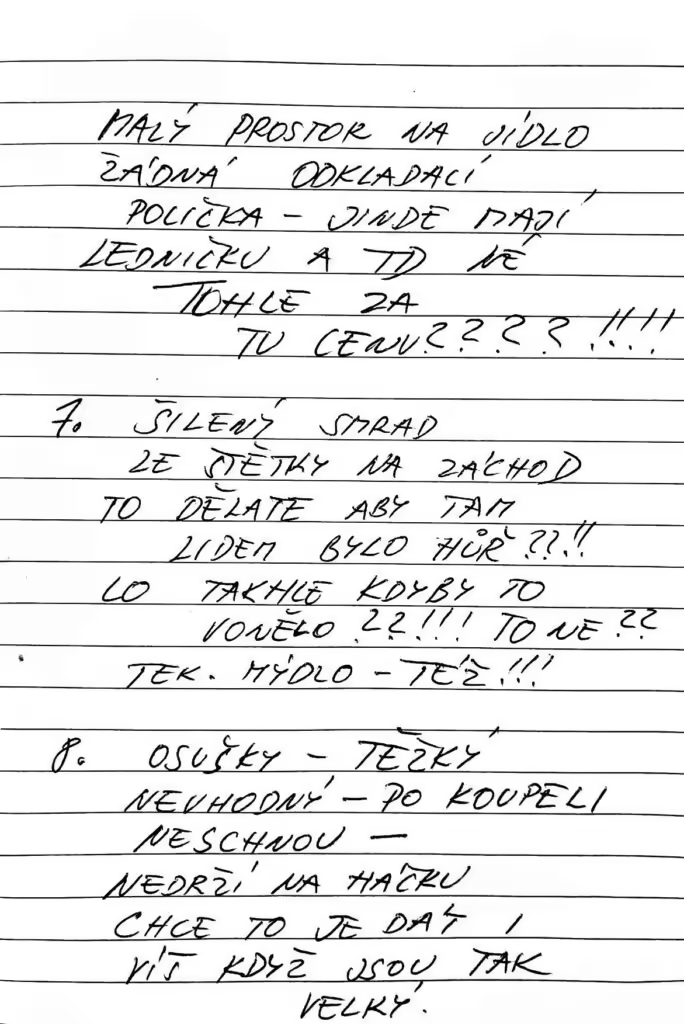 MALÝ PROSTOR NA JÍDLO
ŽÁDNÁ ODKLADACÍ
POLIČKA – JINDE MAJÍ
LEDNIČKU A TD NÉ
TOHLE ZA
TU CENU???? !!!!
7. ŠILENÝ SMRAD
ZE ŠTĚTKY NA ZÁCHOD
TO DĚLATE ABY TAM
LIDEM BYLO HŮŘ ??!!
CO TAKHLE KDYBY TO
VONĚLO ??!!! TO NE ??
TEK. MÝDLO – TÉŽ!!!
8. OSUŠKY – TĚŽKÝ
NEVHODNÝ – PO KOUPELI
NESCHNOU –
NEDRŽÍ NA HÁČKU
CHCE TO JE DÁT I
VÍŠ KDYŽ JSOU TAK
VELKÝ.